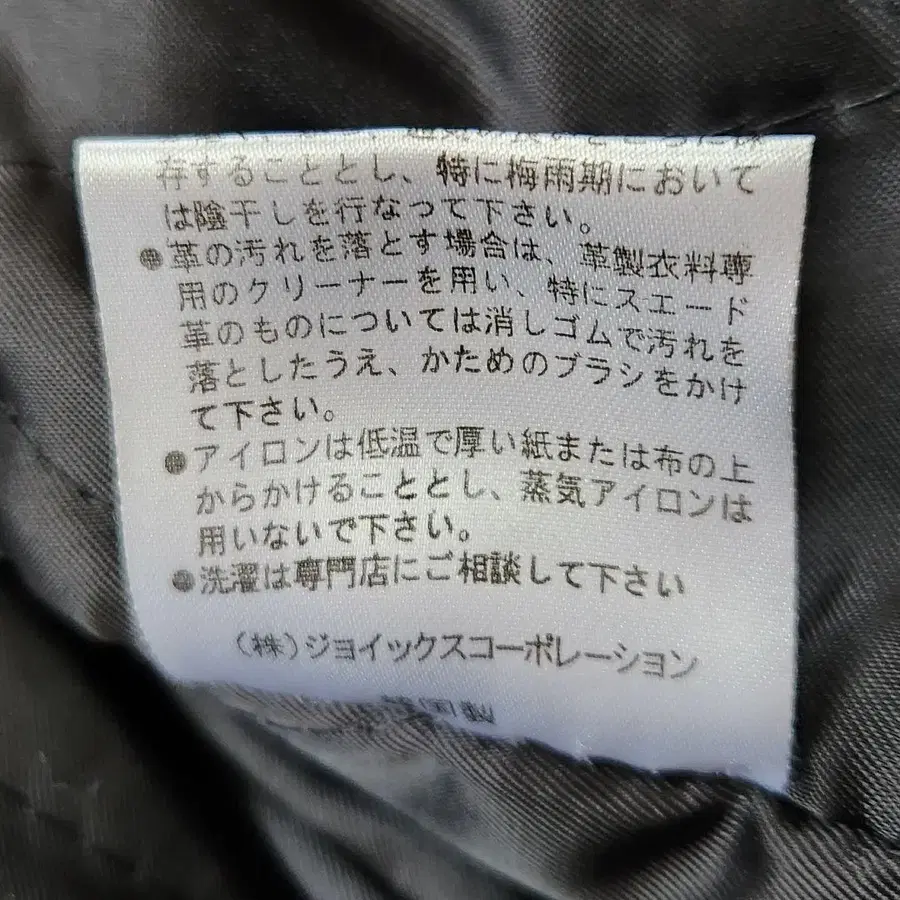 存することとし、特に梅雨期において
は陰干しを行なって下さい。
●革の汚れを落とす場合は、革製衣料専
用のクリーナーを用い、特にスエード
革のものについては消しゴムで汚れを
落としたうえ、かためのブラシをかけ
て下さい。
●アイロンは低温で厚い紙または布の上
からかけることとし、蒸気アイロンは
用いないで下さい。
●洗濯は専門店にご相談して下さい
(株)ジョイックスコーポレーション